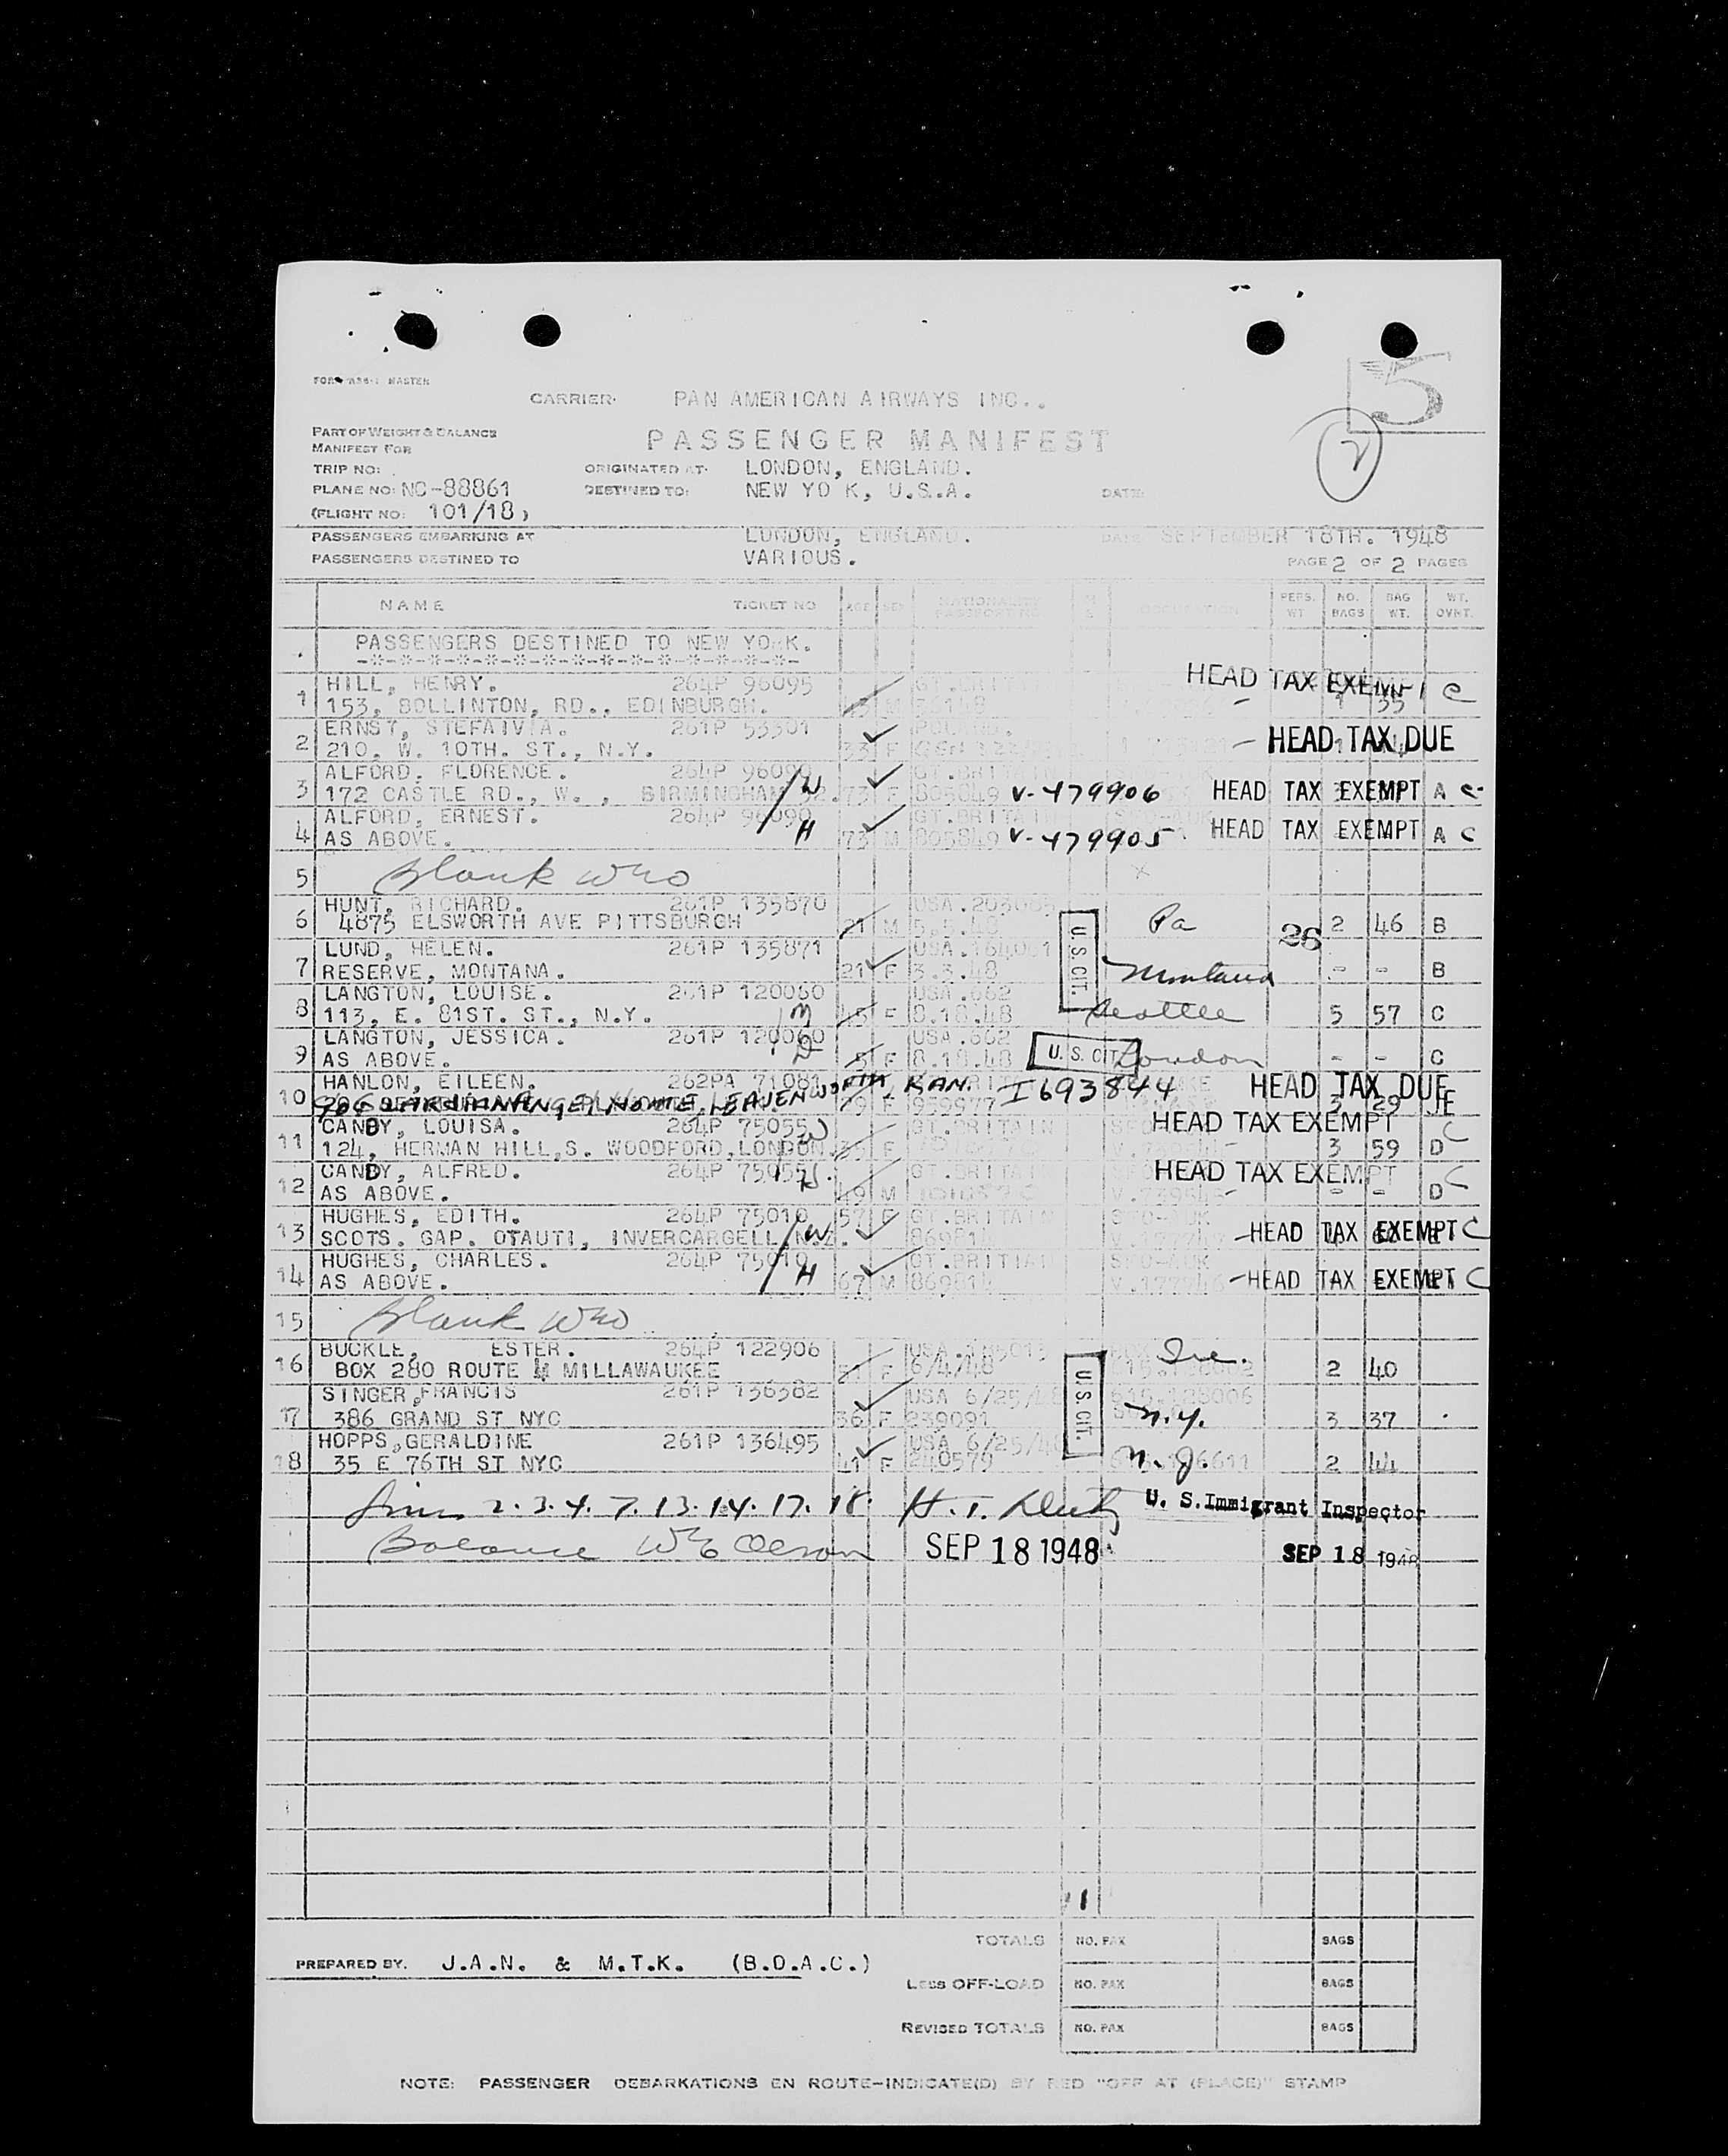 5
CARRIER- PAN AMERICAN AIRWAYS INC..
2
PART OF WEIGHT & BALANCE
MANIFEST FOR
PASSENGER MANIFEST
TRIP NO: ORIGINATED AT- LONDON, ENGLAND.
PLANE NO: NC-88861 DESTINED TO: NEW YO K, U.S.A. DATE:
(FLIGHT NO: 101/18)
PASSENGERS EMBARKING AT LONDON, ENGLAND. DATE SEPTEMBER 18TH. 1948
PASSENGERS DESTINED TO VARIOUS. PAGE 2 OF 2 PAGES
NAME TICKET NO AGE SEX NATIONALITY PERS. WT NO. BAGS BAG WT. WT. OVHT.
PASSENGERS DESTINED TO NEW YORK.
-*-*-*-*-*-*-*-*-*-*-*-*-*-*-*-
HILL, HENRY. 264P 96095 HEAD TAX EXEMPT C
1 153, BOLLINTON, RD., EDINBURGH. M 35
ERNST, 261P 53301 POLAND.
2 210. W. 10TH. ST., N.Y. 33 F HEAD TAX DUE
ALFORD, FLORENCE. 264P 96090 W GT.BRITAIN
3 172 CASTLE RD., W., BIRMINGHAM 73 F 805849 V-479906 HEAD TAX EXEMPT A C
ALFORD, ERNEST. 264P 96090 GT.BRITAIN
4 AS ABOVE. H 73 M 805849 V-479905 HEAD TAX EXEMPT A C
5 Blank WHO
HUNT, RICHARD. 261P 135870
6 4875 ELSWORTH AVE PITTSBURGH 21 M 5.5.48 U.S. CIT. Pa 26 2 46 B
LUND, HELEN. 261P 135871
7 RESERVE, MONTANA. 21 F 3.3.48 Montana - - B
LANGTON, LOUISE. 261P 120060 USA.662
8 113, E. 81ST. ST., N.Y. M F 8.18.48 Seattle 5 57 C
LANGTON, JESSICA. 261P 120060 USA.662
9 AS ABOVE. D 5 F 8.18.48 U.S. CIT. London - - C
HANLON, EILEEN. 262PA 71081 I693844 HEAD TAX DUE
10 LEAVENWORTH, KAN. F 959977 3 29
CANDY, LOUISA. 264P 75055 W GT.BRITAIN HEAD TAX EXEMPT C
11 124, HERMAN HILL,S. WOODFORD,LONDON. F 3 59 D
CANDY, ALFRED. 264P 75055 H GT.BRITAIN HEAD TAX EXEMPT C
12 AS ABOVE. 49 M - - D
HUGHES, EDITH. 264P 75010 57 F GT.BRITAIN
13 SCOTS. GAP. OTAUTI, INVERCARGELL N.Z. W 869814 -HEAD TAX EXEMPT C
HUGHES, CHARLES. 264P 75010 GT.BRITIAN
14 AS ABOVE. H 67 M 869814 -HEAD TAX EXEMPT C
15 Blank WHO
BUCKLE, ESTER. 264P 122906
16 BOX 280 ROUTE 4 MILLAWAUKEE F 6/4/48 U.S. CIT. Ire. 2 40
SINGER,FRANCIS 261P 136382 USA 6/25/48
17 386 GRAND ST NYC 36 F 239091 N.Y. 3 37
HOPPS,GERALDINE 261P 136495 USA 6/25/48
18 35 E 76TH ST NYC 41 F 240579 N.J. 2 44
2. 3. 4. 7. 13. 14. 17. 18. U. S. Immigrant Inspector
Balance SEP 18 1948 SEP 18 1948
TOTALS NO. PAX BAGS
PREPARED BY. J.A.N. & M.T.K. (B.O.A.C.)
LESS OFF-LOAD NO. PAX BAGS
REVISED TOTALS NO. PAX BAGS
NOTE: PASSENGER DEBARKATIONS EN ROUTE-INDICATE(D) BY RED "OFF AT (PLACE)" STAMP